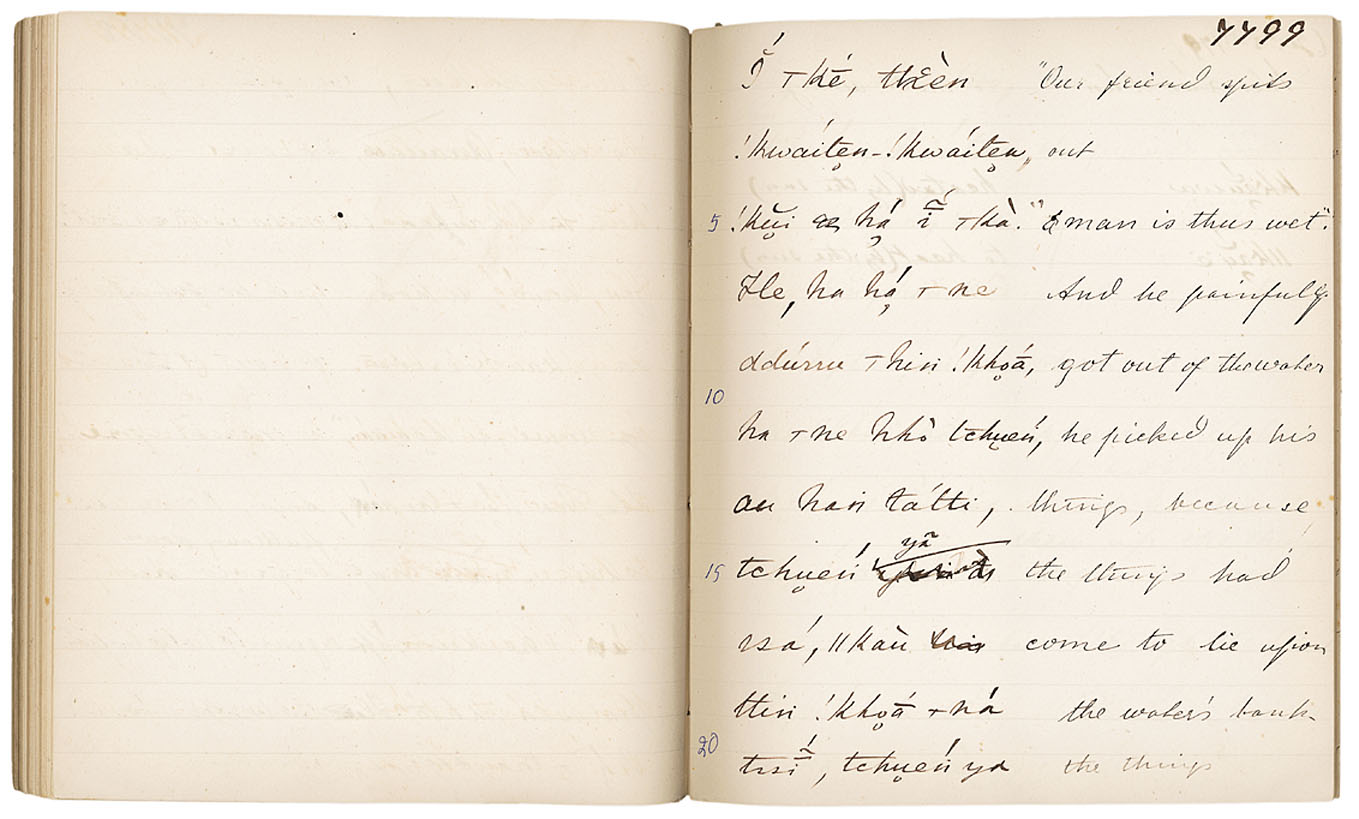 7799
Í ⊤ké, tkèn "Our friend spits
!kwaítẹn-!kwáítẹn,, out
5 !kũi hạ́ ĩ́ ⊤kà." "A man is thus wet".
He, ha hạ́ ⊤ne And he painfully
ddúrru ⊤hiṅ !khọā́, got out of the water
10
ha ⊤ne hhò tchụeṅ́, he picked up his
au haṅ tátti, things, because
yã
15 tchụeṅ́ the things had
ssá, ǁkaù come to lie upon
ttiṅ !khọā́ ⊤ná the water's bank
20 tssĩ́, tchụeṅ́ ya the things